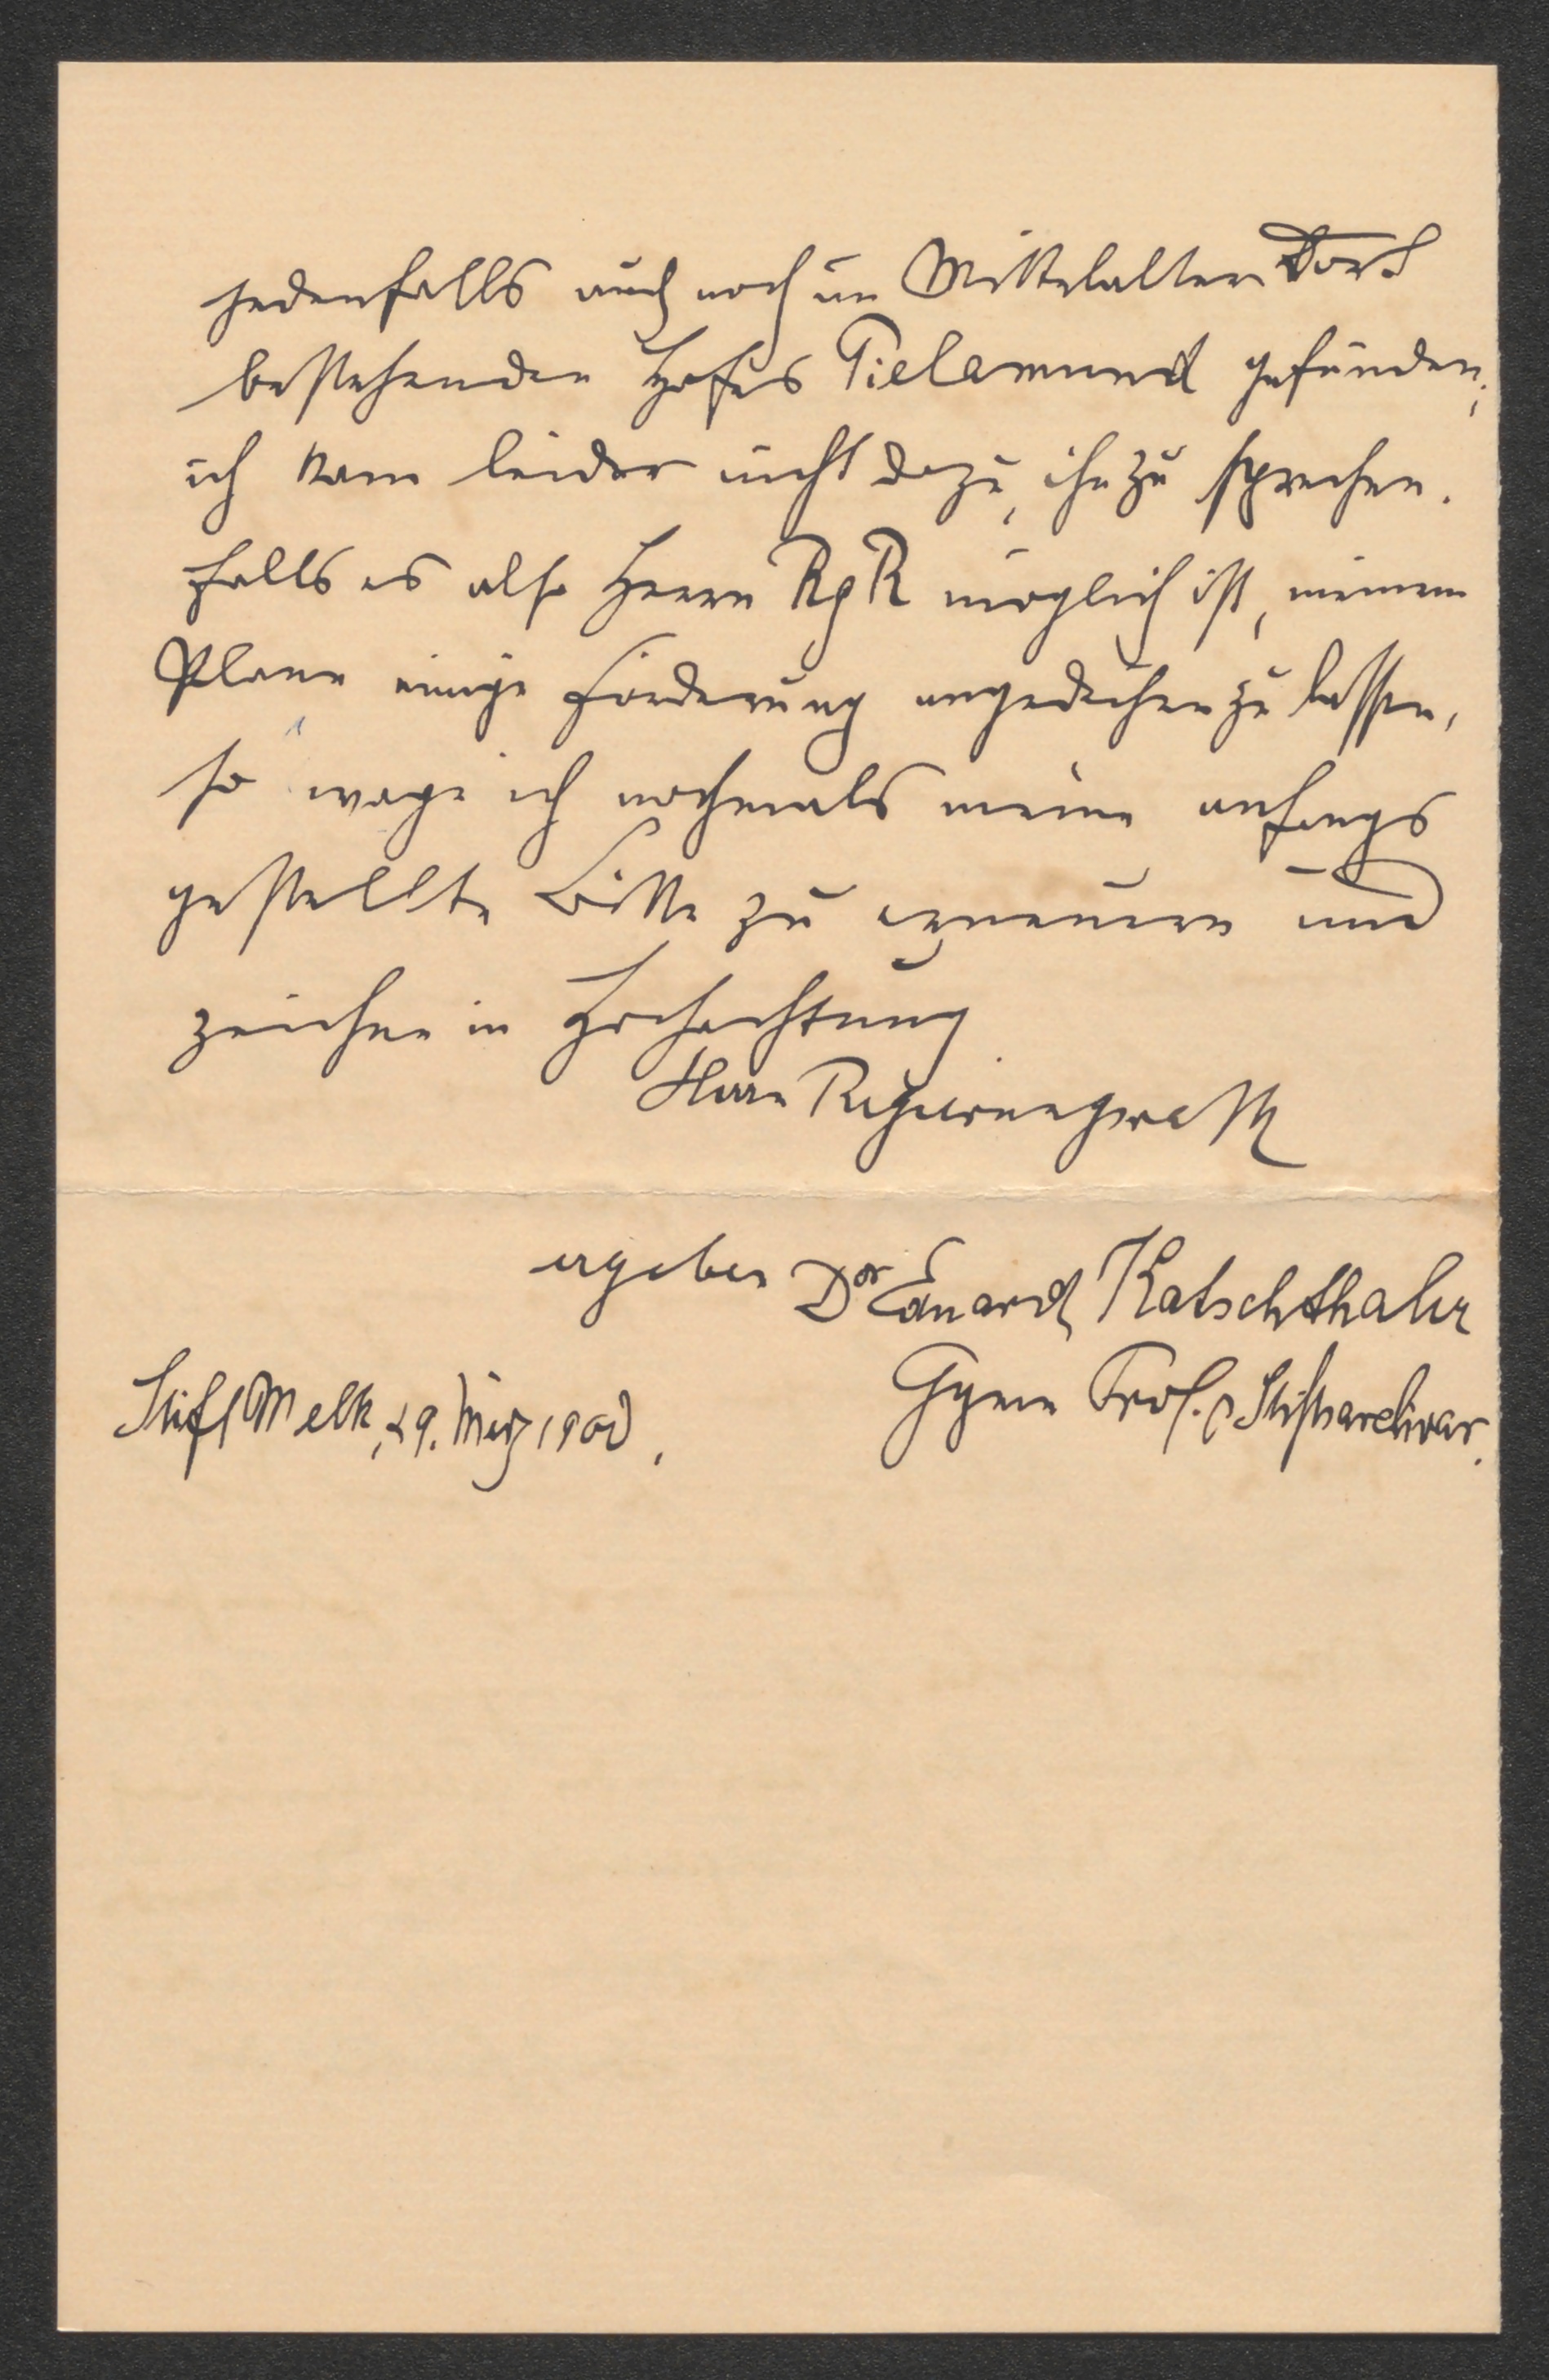 jedenfalls auch noch im Mittelalter dort
bestehenden Hofes Pielamund gefunden;
ich kam leider nicht dazu, ihn zu sprechen.
Falls es also Herrn RgR möglich ist, meinem
Plane einige Förderung angedeihen zu lassen,
so wage ich nochmals meine anfangs
gestellte Bitte zu erneuern und
zeichne in Hochachtung
Herrn Regierungsrath
ergeben Dor Eduard Katschthaler
Gymn Prof. Stiftsarchivar.
Stift Melk, 29. März 190